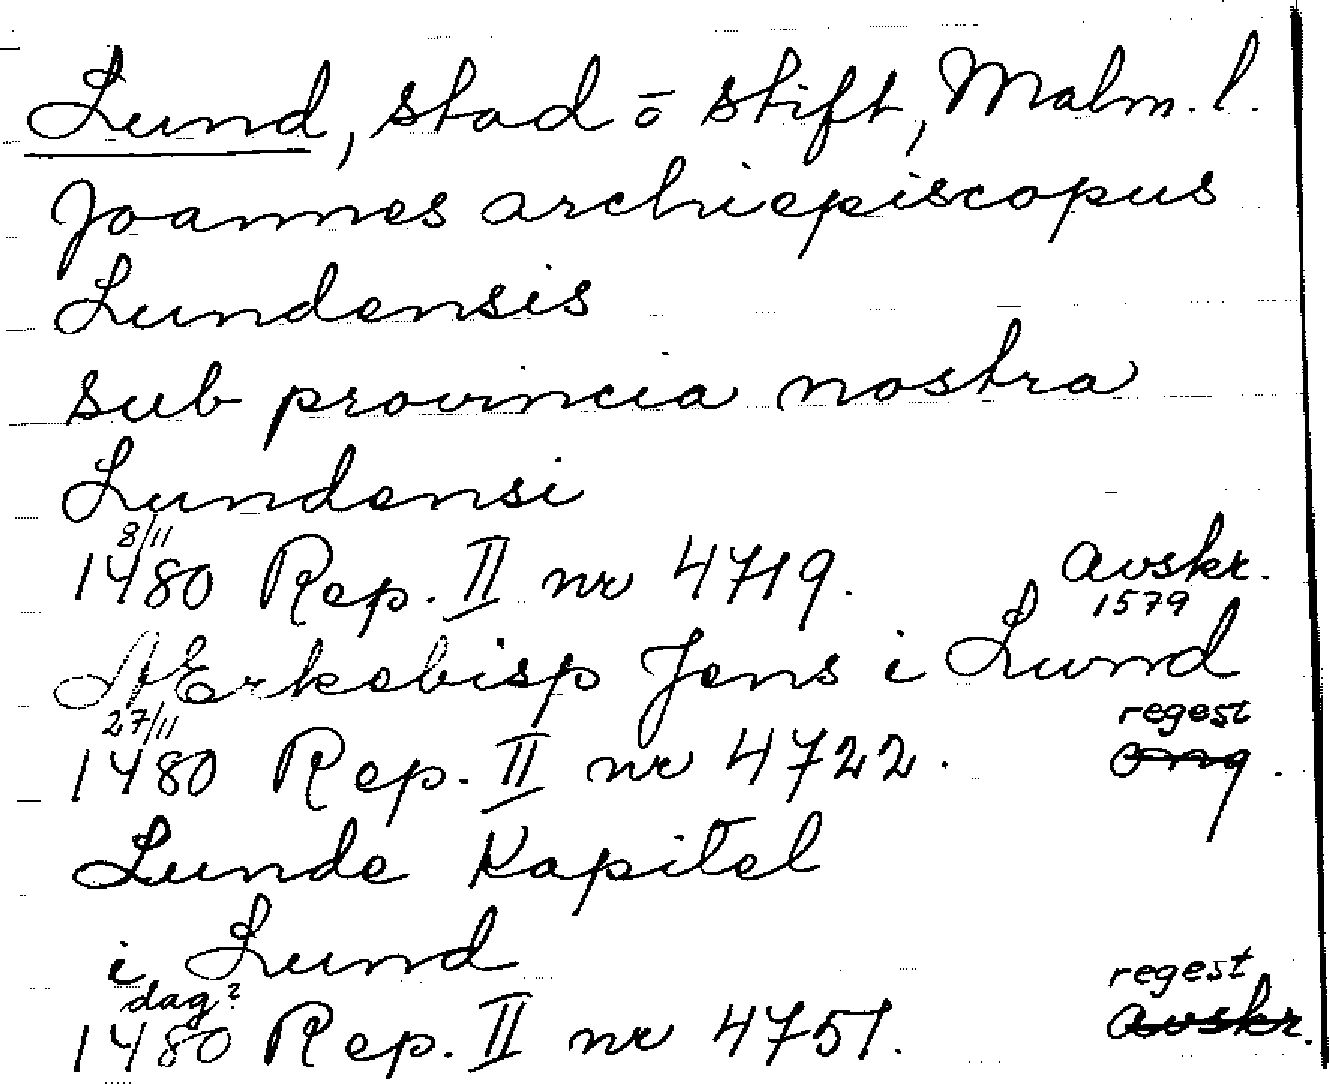 Lund, stad o stift, Malm. l.
Joannes archiepiscopus
Lundensis
sub provincia nostra
Lundensi
8/11
1480 Rep. II nr 4719. avskr.
1579
Erkebisp Jens i Lund
27/11 regest
1480 Rep. II nr 4722. orig.
Lunde Kapitel
i Lund
dag? regest
1480 Rep. II nr 4751. avskr.